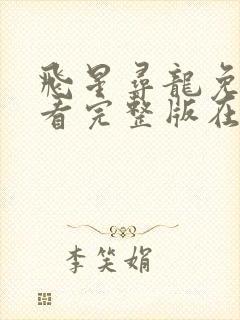 飛星尋龍免
看完整版在
李笑娟